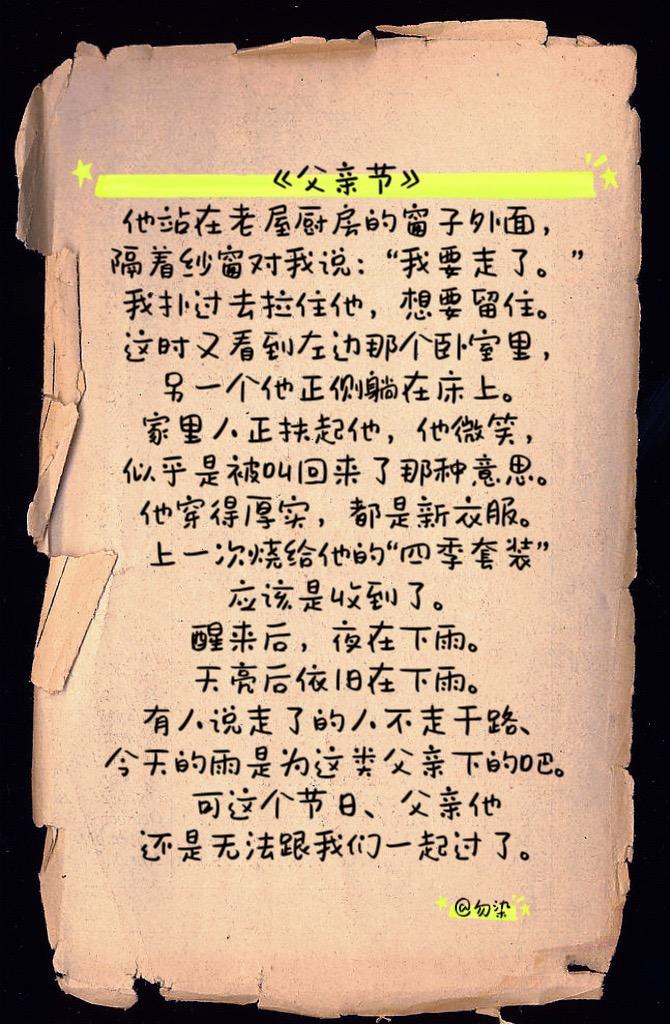 《父亲节》
他站在老屋厨房的窗子外面，
隔着纱窗对我说：“我要走了。”
我扑过去拉住他，想要留住。
这时又看到左边那个卧室里，
另一个他正侧躺在床上。
家里人正扶起他，他微笑，
似乎是被叫回来了那种意思。
他穿得厚实，都是新衣服。
上一次烧给他的“四季套装”
应该是收到了。
醒来后，夜在下雨。
天亮后依旧在下雨。
有人说走了的人不走干路、
今天的雨是为这类父亲下的吧。
可这个节日、父亲他
还是无法跟我们一起过了。
@勿染